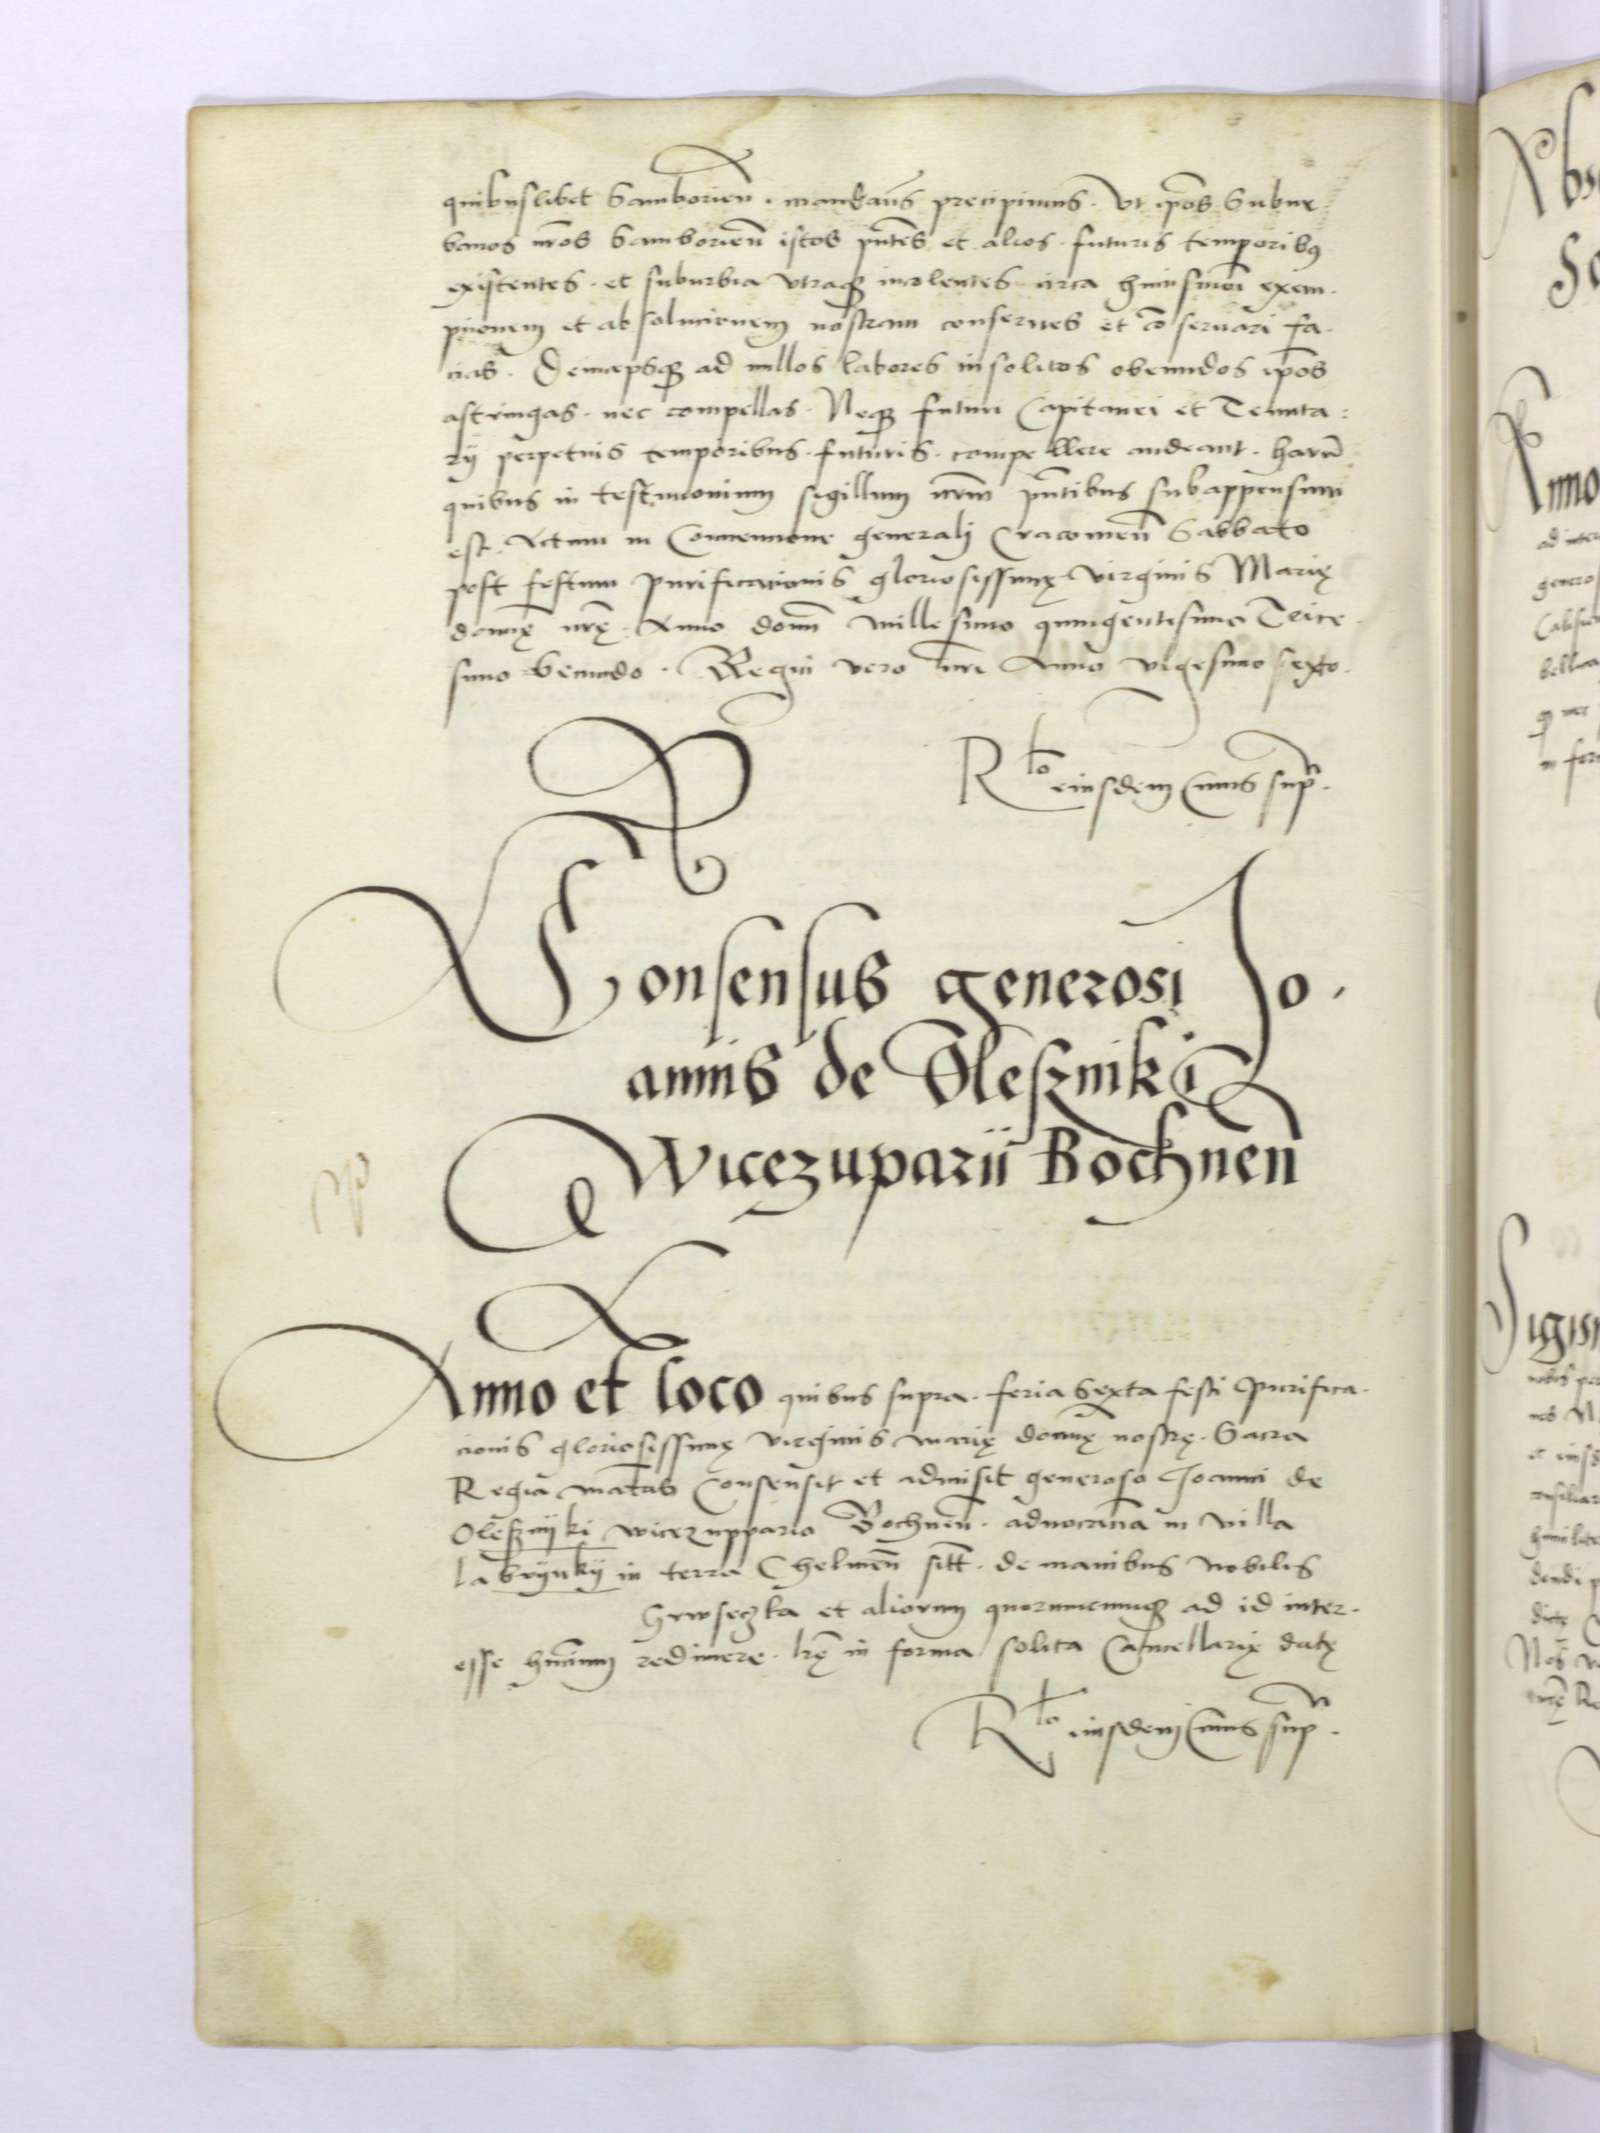 quibuslibet Samborien̄. mandan̄s precipimus. Vt ip̄os Subur
banos nr̄os Samborien̄ istos p̄ntes et alios futuris temporibꝰ
existentes. et suburbia vtraqꝫ incolentes circa huiusmōi exem-
ptionem et absolucionem nostram conserues et cōseruari fa-
cias. Deincepsqꝫ ad nullos labores insolitos obeundos ip̄os
astringas. nec compellas. Neqꝫ futuri Capitanei et Tenuta:
rij perpetuis temporibus futuris. compellere audeant. harū
quibus in testimonium sigillum nr̄m p̄ntibus subappensum
est. Actum in Conuentione generali Cracouien̄ Sabbato
post festum Purificacionis gloriosissimę virginis Marię
domnę nr̄ę. Anno domi millesimo quingentesimo Trice
simo Secundo. Regni vero nr̄i Anno vigesimo sexto.
Rlo eiusdem Cuius sup̄.
Consensus generosi Jo-
annis de Oleszniki
Wicezuparii Bochnen̄
Anno et loco quibus supra. feria Sexta festi Purifica-
cionis gloriosissimę virginis marię domnę nostrę. Sacra
Regia Mātas Consensit et admisit generoso Joanni de
Olesznijki wicezuppario Bochnen̄. aduocatiā in villa
Labrijnkij in terra Chelmen̄ sitt̄. de manibus nobilis
Hrwseczka et aliorum quorumcunqꝫ ad id inter-
esse hn̄cium redimere. lr̄ę in forma solita Cancellarię datę
Rlo eiusdem Cuius sup̄.